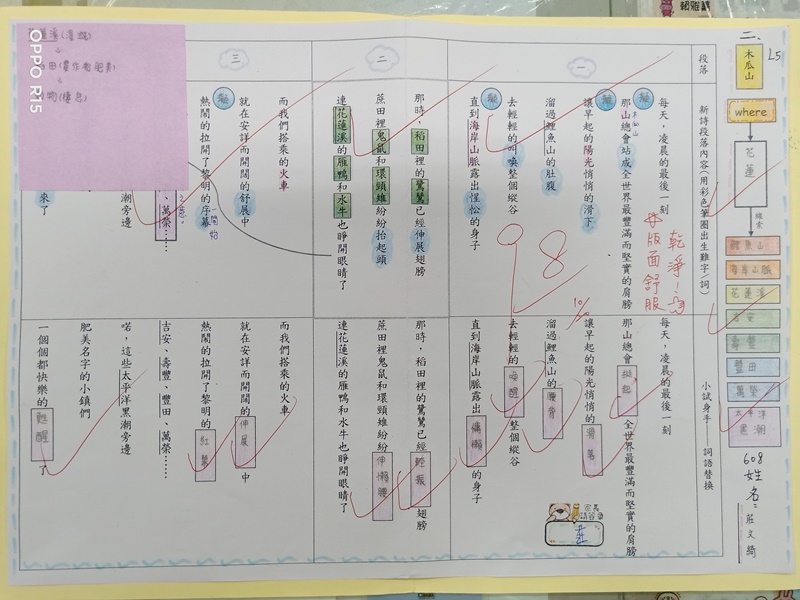 二、
木瓜山
L5
where
花蓮
線索
鯉魚山
海岸山脈
花蓮溪
吉安
壽豐
豐田
萬榮
太平洋
黑潮
608
姓名:
莊文綺
段落
新詩段落內容(用彩色筆圈出生難字/詞)
小試身手
詞語替換
一
每天，凌晨的最後一刻
那山總會站成全世界最豐滿而堅實的肩膀
木瓜山
讓早起的陽光悄悄的滑下
溜過鯉魚山的肚腹
去輕輕的叫喚整個縱谷
直到海岸山脈露出惺忪的身子
擬
擬
擬
乾淨!
版面舒服
98
10/
二
那時，稻田裡的鷺鷥已經伸展翅膀
蔗田裡鬼鼠和環頸雉紛紛抬起頭
連花蓮溪的雁鴨和水牛也睜開眼睛了
三
而我們搭乘的火車
就在安詳而開闊的舒展中
熱鬧的拉開了黎明的序幕
開始
擬
、萬榮……
黑潮旁邊
來了
稻田(
每天，凌晨的最後一刻
那山總會挺起全世界最豐滿而堅實的肩膀
讓早起的陽光悄悄的滑落
溜過鯉魚山的
去輕輕的喚醒整個縱谷
直到海岸山脈露出慵懶的身子
那時，稻田裡的鷺鷥已經輕振翅膀
蔗田裡鬼鼠和環頸雉紛紛伸懶腰
連花蓮溪的雁鴨和水牛也睜開眼睛了
而我們搭乘的火車
就在安詳而開闊的伸展中
熱鬧的拉開了黎明的紅幕
吉安、壽豐、豐田、萬榮……
喏，這些太平洋黑潮旁邊
肥美名字的小鎮們
一個個都快樂的甦醒了
OPPO R15